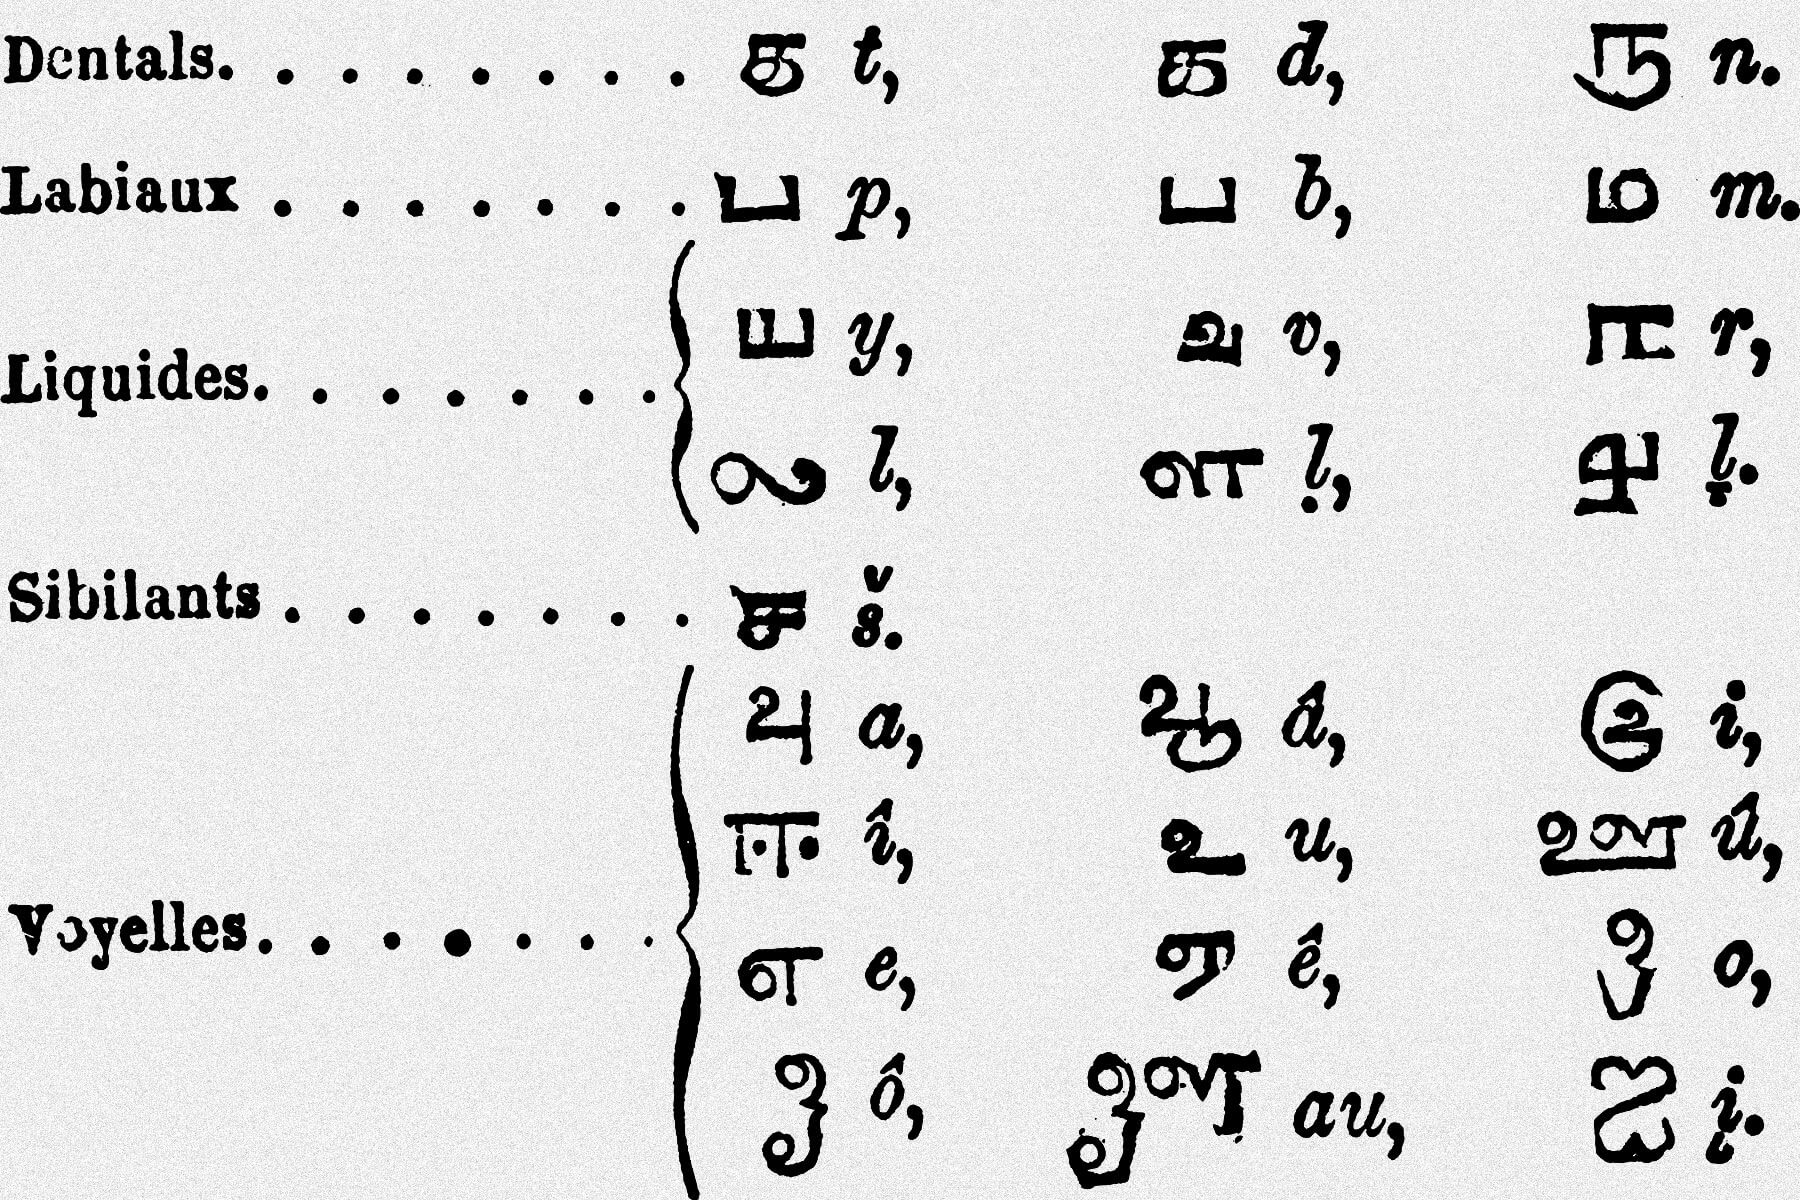 Dentals. . . . . . . . த t, த d, ந n.
Labiaux . . . . . . . ப p, ப b, ம m.
ய y, வ v, ர r,
Liquides. . . . . . .
ல l, ள ḷ, ழ ḻ.
Sibilants . . . . . . . ச š.
அ a, ஆ â, இ i,
ஈ î, உ u, ஊ û,
Voyelles. . . . . . .
எ e, ஏ ê, ஒ o,
ஓ ô, ஔ au, ஐ į.